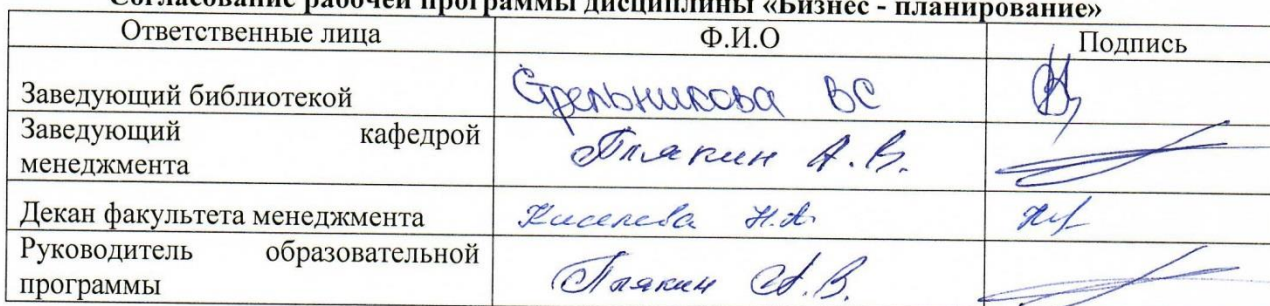 Согласование рабочей программы дисциплины «Бизнес - планирование»
Ответственные лица Ф.И.О Подпись
Заведующий библиотекой Стрельникова ВС
Заведующий кафедрой
менеджмента Плякин А.В.
Декан факультета менеджмента Киселева Н.А.
Руководитель образовательной
программы Плякин А.В.